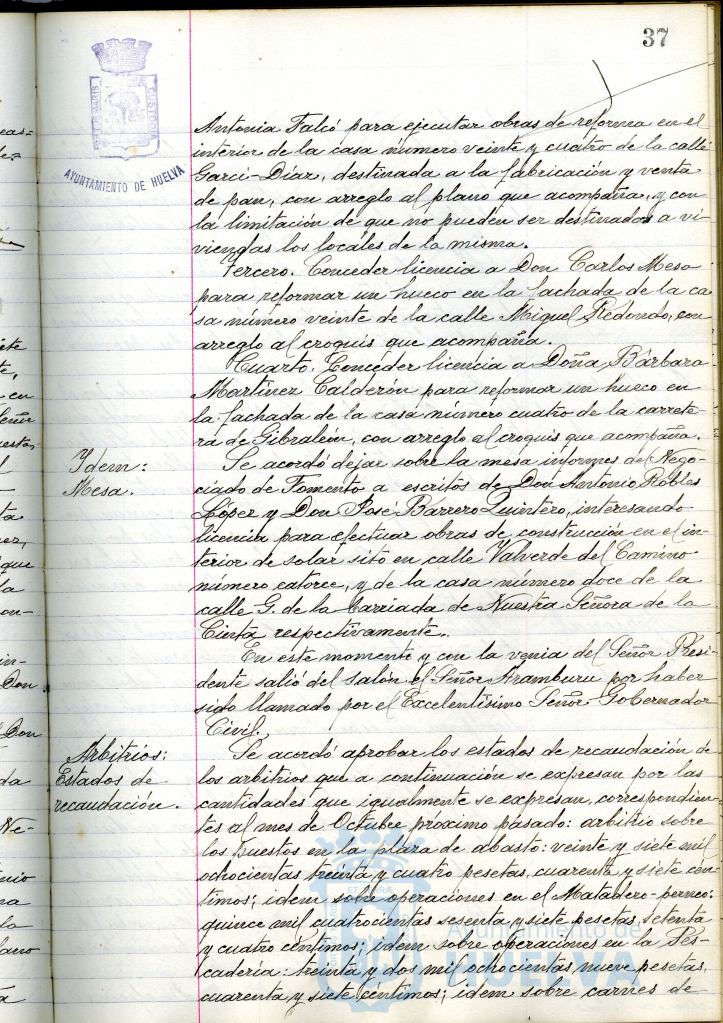 37
AYUNTAMIENTO DE HUELVA
Antonia Falcó para ejecutar obras de reforma en el
interior de la casa número veinte y cuatro de la calle
Garci-Díaz, destinada a la fabricación y venta
de pan, con arreglo al plano que acompaña, y con
la limitación de que no pueden ser destinados a vi-
viendas los locales de la misma.
Tercero. Conceder licencia a Don Carlos Mesa
para reformar un hueco en la fachada de la ca-
sa número veinte de la calle Miguel Redondo, con
arreglo al croquis que acompaña.
Cuarto. Conceder licencia a Doña Bárbara
Martínez Calderón para reformar un hueco en
la fachada de la casa número cuatro de la carrete-
ra de Gibraleón, con arreglo al croquis que acompaña.
Ydem:
Mesa.
Se acordó dejar sobre la mesa informes del Nego-
ciado de Fomento a escritos de Don Antonio Robles
López y Don José Barrero Quintero, interesando
licencia para efectuar obras de construcción en el in-
terior de solar sito en calle Valverde del Camino
número catorce, y de la casa número doce de la
calle G. de la barriada de Nuestra Señora de la
Cinta respectivamente.
En este momento y con la venia del Señor Presi-
dente salió del salón el Señor Aramburu por haber
sido llamado por el Excelentísimo Señor Gobernador
Civil.
Arbitrios:
Estados de
recaudación.
Se acordó aprobar los estados de recaudación de
los arbitrios que a continuación se expresan por las
cantidades que igualmente se expresan, correspondien-
tes al mes de Octubre próximo pasado: arbitrio sobre
los puestos en la plaza de abasto: veinte y siete mil
ochocientas treinta y cuatro pesetas, cuarenta y siete cén-
timos; idem sobre operaciones en el Matadero-porneo:
quince mil cuatrocientas sesenta y siete pesetas, setenta
y cuatro céntimos; idem sobre operaciones en la Pes-
cadería: treinta y dos mil ochocientas nueve pesetas,
cuarenta y siete céntimos; idem sobre carnes de
Ayuntamiento de
HUELVA